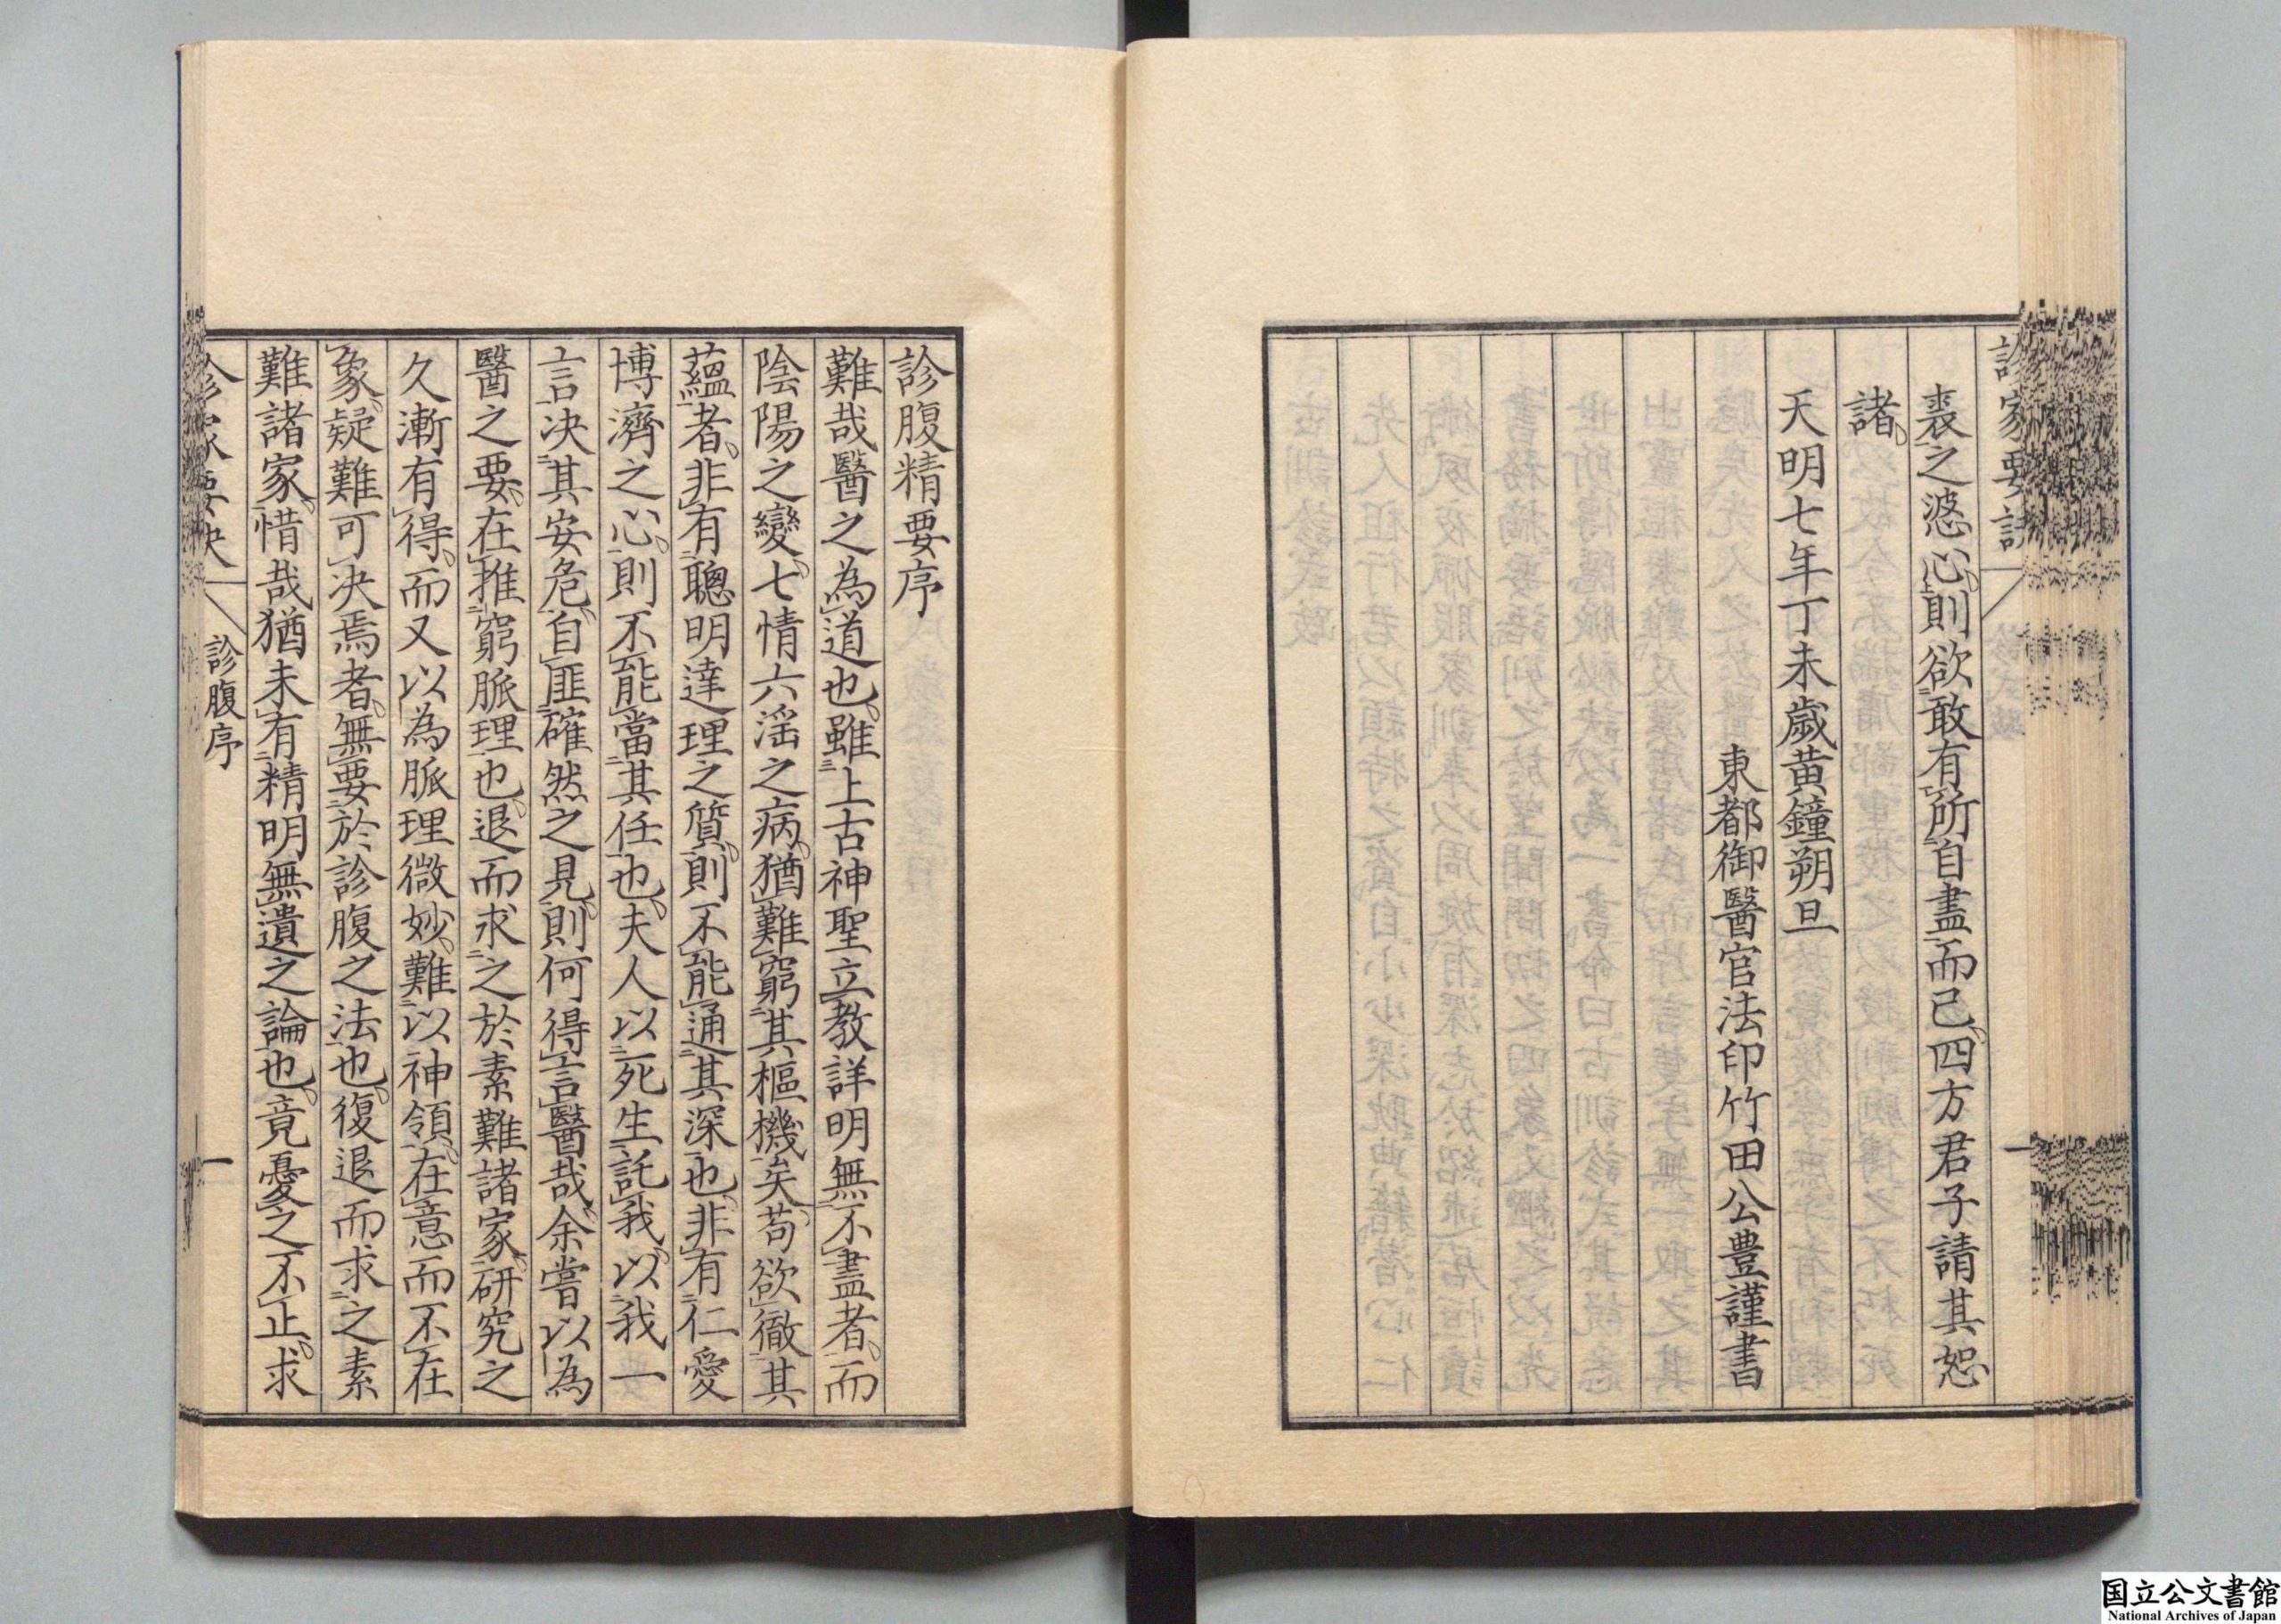 裘之婆心則欲敢有所自盡而已四方君子請其恕
諸
天明七年丁未歳黄鐘朔旦
東都御醫官法印竹田公豊謹書
診腹精要序
難哉醫之為道也雖上古神聖立教詳明無不盡者而
陰陽之變七情六滛之病猶難窮其樞機矣苟欲徹其
蘊者非有聰明達理之質則不能通其深也非有仁愛
博濟之心則不能當其任也夫人以死生託我以我一
言决其安危自匪確然之見則何得言醫哉余嘗以為
醫之要在推窮脈理也退而求之於素難諸家研究之
久漸有得而又以為脈理微妙難以神領在意而不在
象疑難可决焉者無要於診腹之法也復退而求之素
難諸家惜哉猶未有精明無遺之論也竟憂之不止求
診腹序
一
国立公文書館
National Archives of Japan